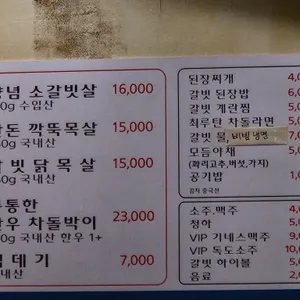 양념 소갈빗살 16,000
0g 수입산
한돈 깍뚝목살 15,000
0g 국내산
갈빗 닭 목 살 15,000
0g 국내산
통한
한우 차돌박이 23,000
0g 국내산 한우 1+
껍 데 기 7,000
내산
된장찌개
갈빗 된장밥
갈빗 계란찜
최루탄 차돌라면
갈빗 물, 비빔 냉면
모듬야채
(꽈리고추,버섯,가지)
공기밥
김치 중국산
소주.맥주
청하
VIP 기네스맥주
VIP 독도소주
갈빗 하이볼
음료